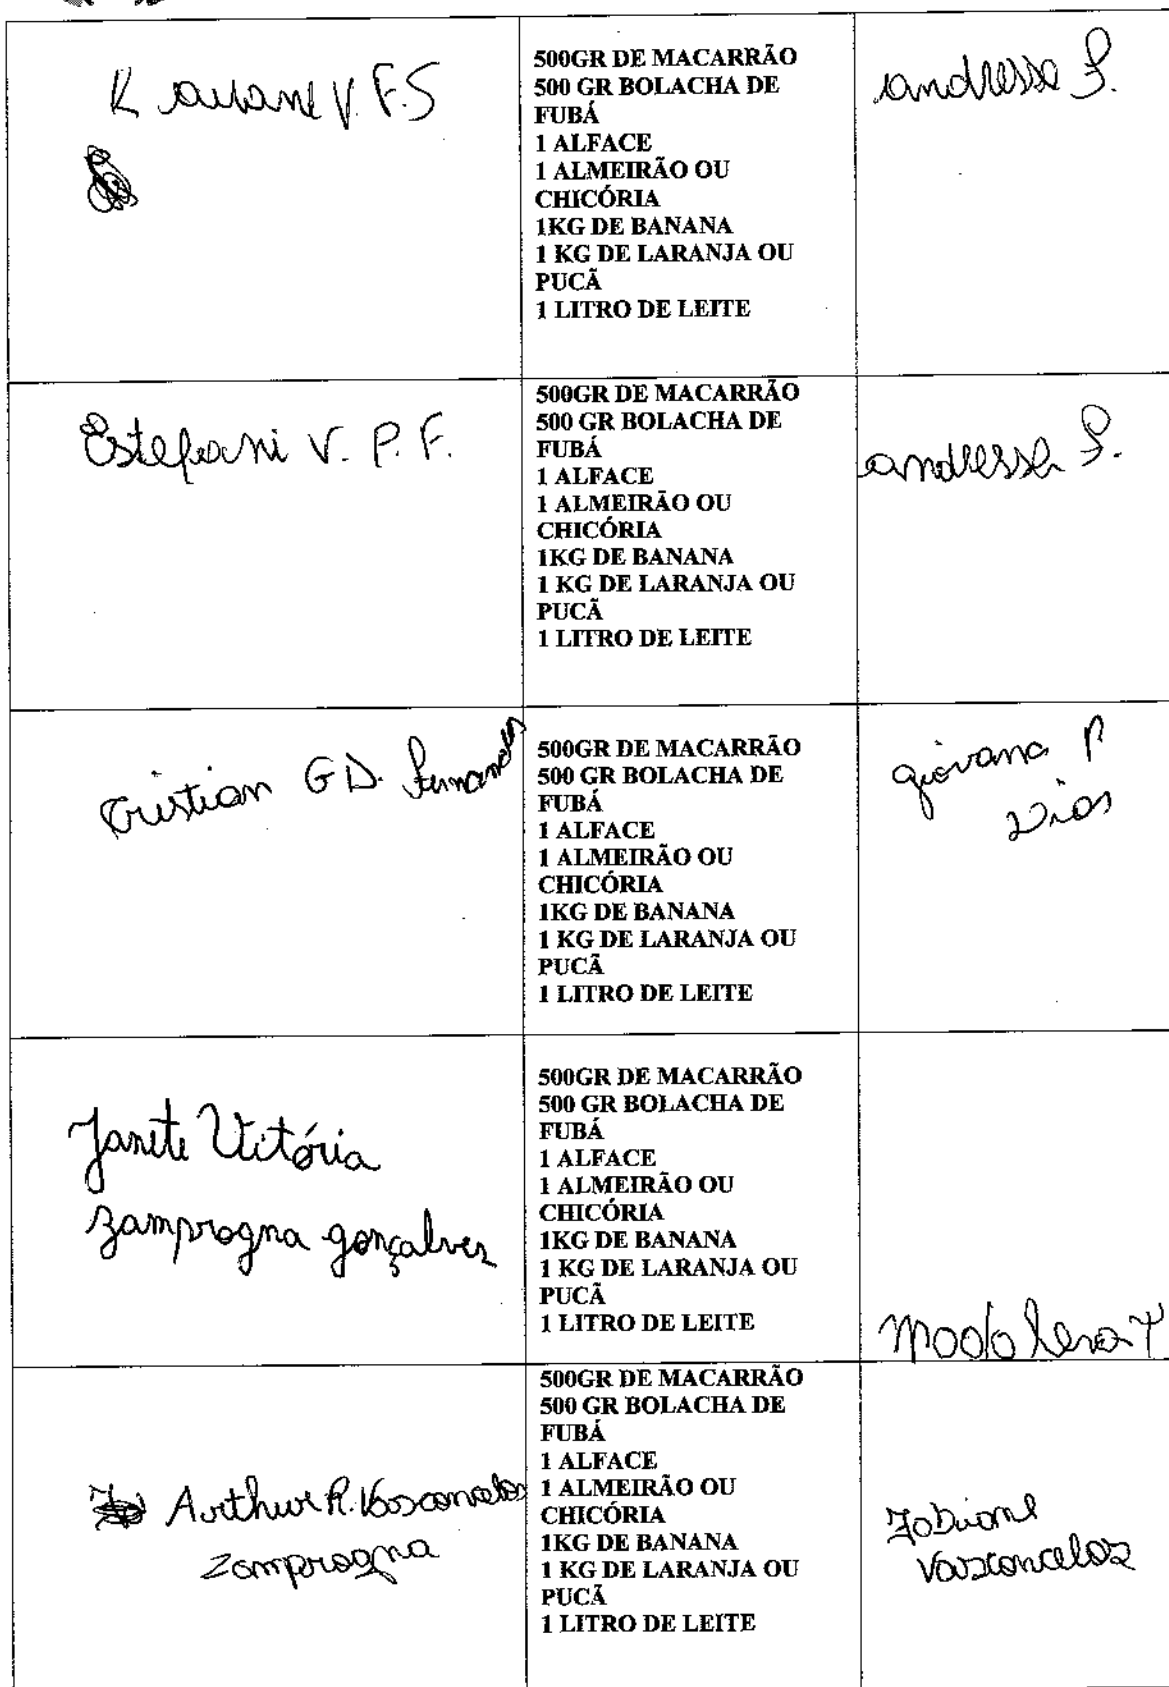 Kauane V. F.S
500GR DE MACARRÃO
500 GR BOLACHA DE
FUBÁ
1 ALFACE
1 ALMEIRÃO OU
CHICÓRIA
1KG DE BANANA
1 KG DE LARANJA OU
PUCÃ
1 LITRO DE LEITE
andressa P.
Estefani V. P. F.
500GR DE MACARRÃO
500 GR BOLACHA DE
FUBÁ
1 ALFACE
1 ALMEIRÃO OU
CHICÓRIA
1KG DE BANANA
1 KG DE LARANJA OU
PUCÃ
1 LITRO DE LEITE
andressa P.
Cristian G D. Fernandes
500GR DE MACARRÃO
500 GR BOLACHA DE
FUBÁ
1 ALFACE
1 ALMEIRÃO OU
CHICÓRIA
1KG DE BANANA
1 KG DE LARANJA OU
PUCÃ
1 LITRO DE LEITE
giovana P
Dias
Janete Vitória
Zamprogna gonçalves
500GR DE MACARRÃO
500 GR BOLACHA DE
FUBÁ
1 ALFACE
1 ALMEIRÃO OU
CHICÓRIA
1KG DE BANANA
1 KG DE LARANJA OU
PUCÃ
1 LITRO DE LEITE
Arthur R. Vasconcelos
Zamprogna
500GR DE MACARRÃO
500 GR BOLACHA DE
FUBÁ
1 ALFACE
1 ALMEIRÃO OU
CHICÓRIA
1KG DE BANANA
1 KG DE LARANJA OU
PUCÃ
1 LITRO DE LEITE
Fabiane
Vasconcelos